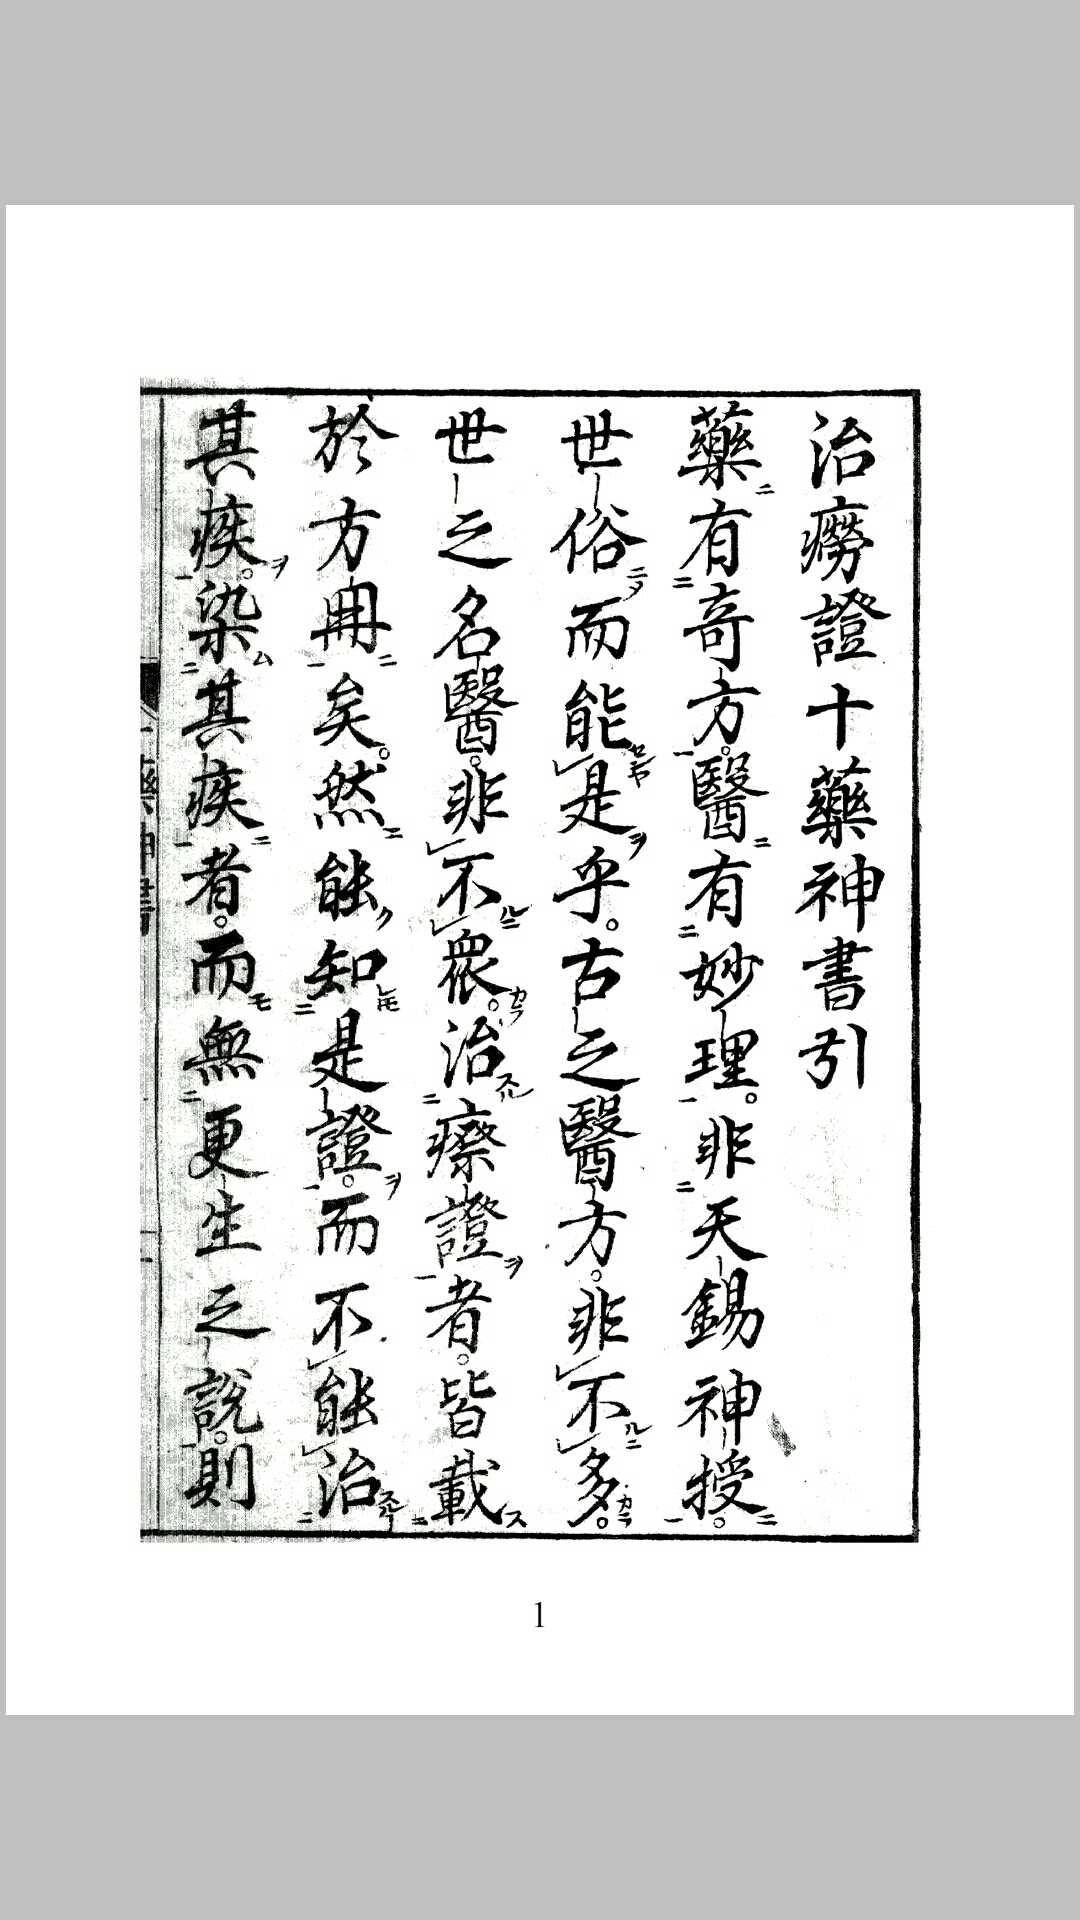 治癆證十藥神書引
藥有奇方。醫有妙理。非天錫神授。
世俗而能是乎。古之醫方。非不多。
世之名醫。非不衆。治瘵證者。皆載
於方冊矣。然能知是證。而不能治
其疾。染其疾者。而無更生之說。則
1